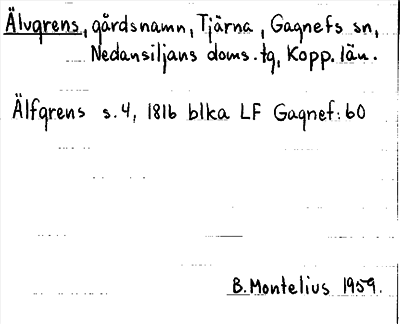 Älvgrens, gårdsnamn, Tjärna, Gagnefs sn,
Nedansiljans doms. tg, Kopp. län.
Älfgrens s. 4, 1816 blka LF Gagnef: 60
B. Montelius 1959.